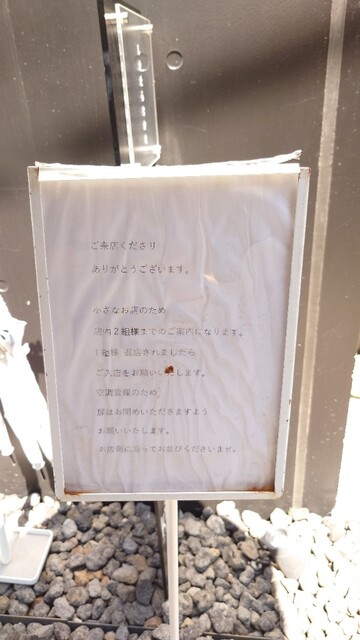 ご来店くださり
ありがとうございます。
小さなお店のため
店内２組様までのご案内になります。
１組様 退店されましたら
ご入店をお願いいたします。
空調管理のため
扉はお閉めいただきますよう
お願いいたします。
お店側に沿ってお並びくださいませ。